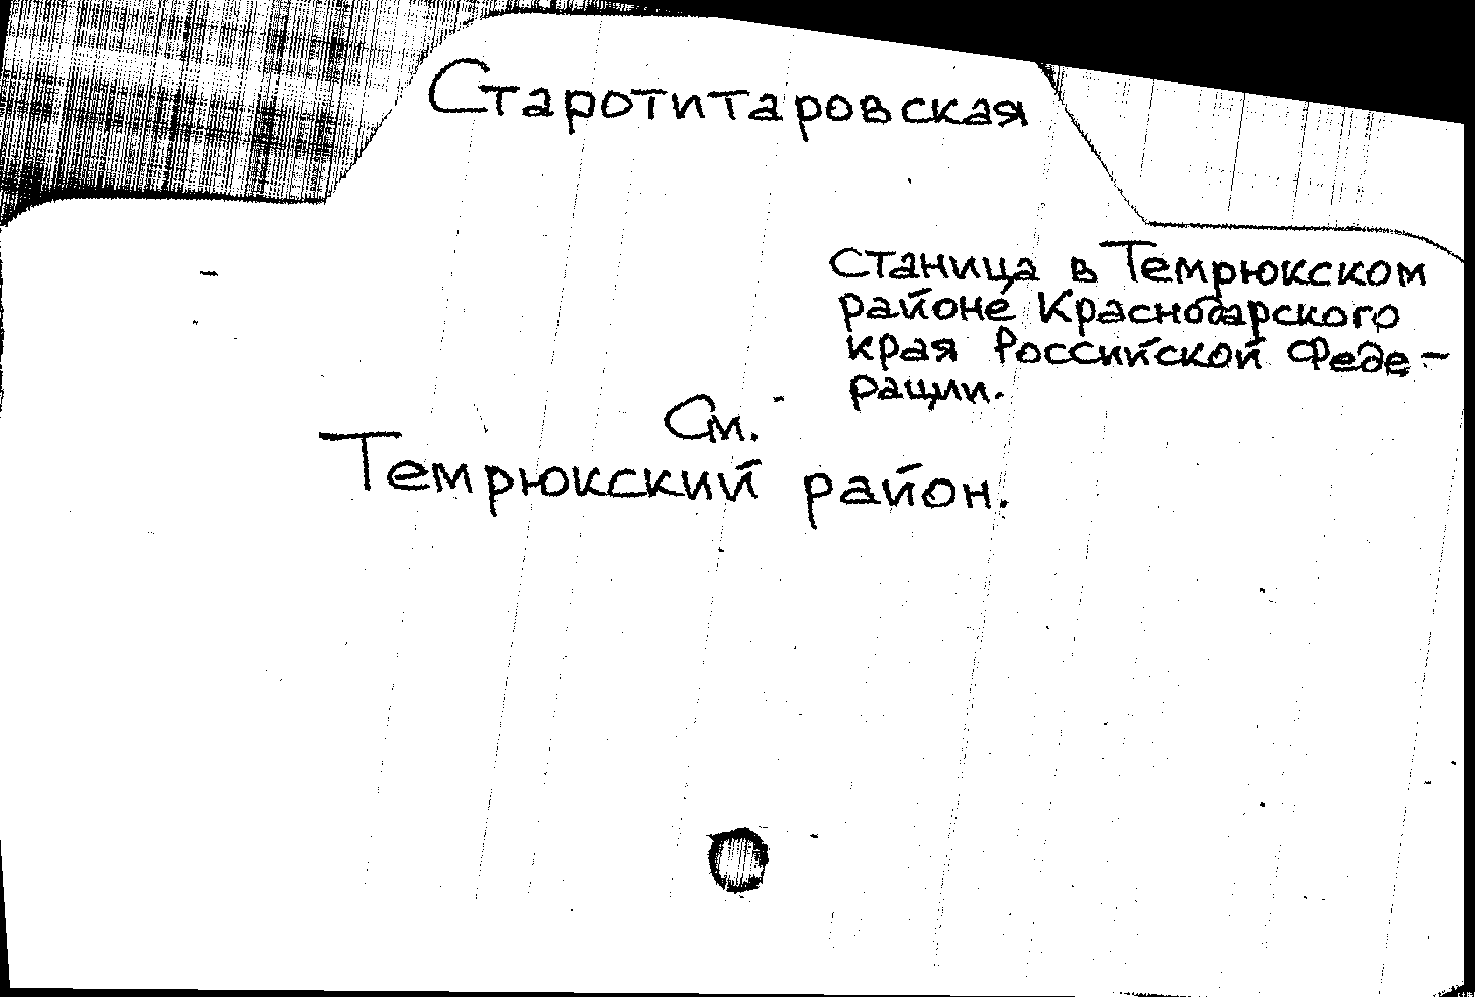 Старотитаровская
станица в Темрюкском
районе Краснодарского
края Российской Феде-
рации.
См.
Темрюкский район.